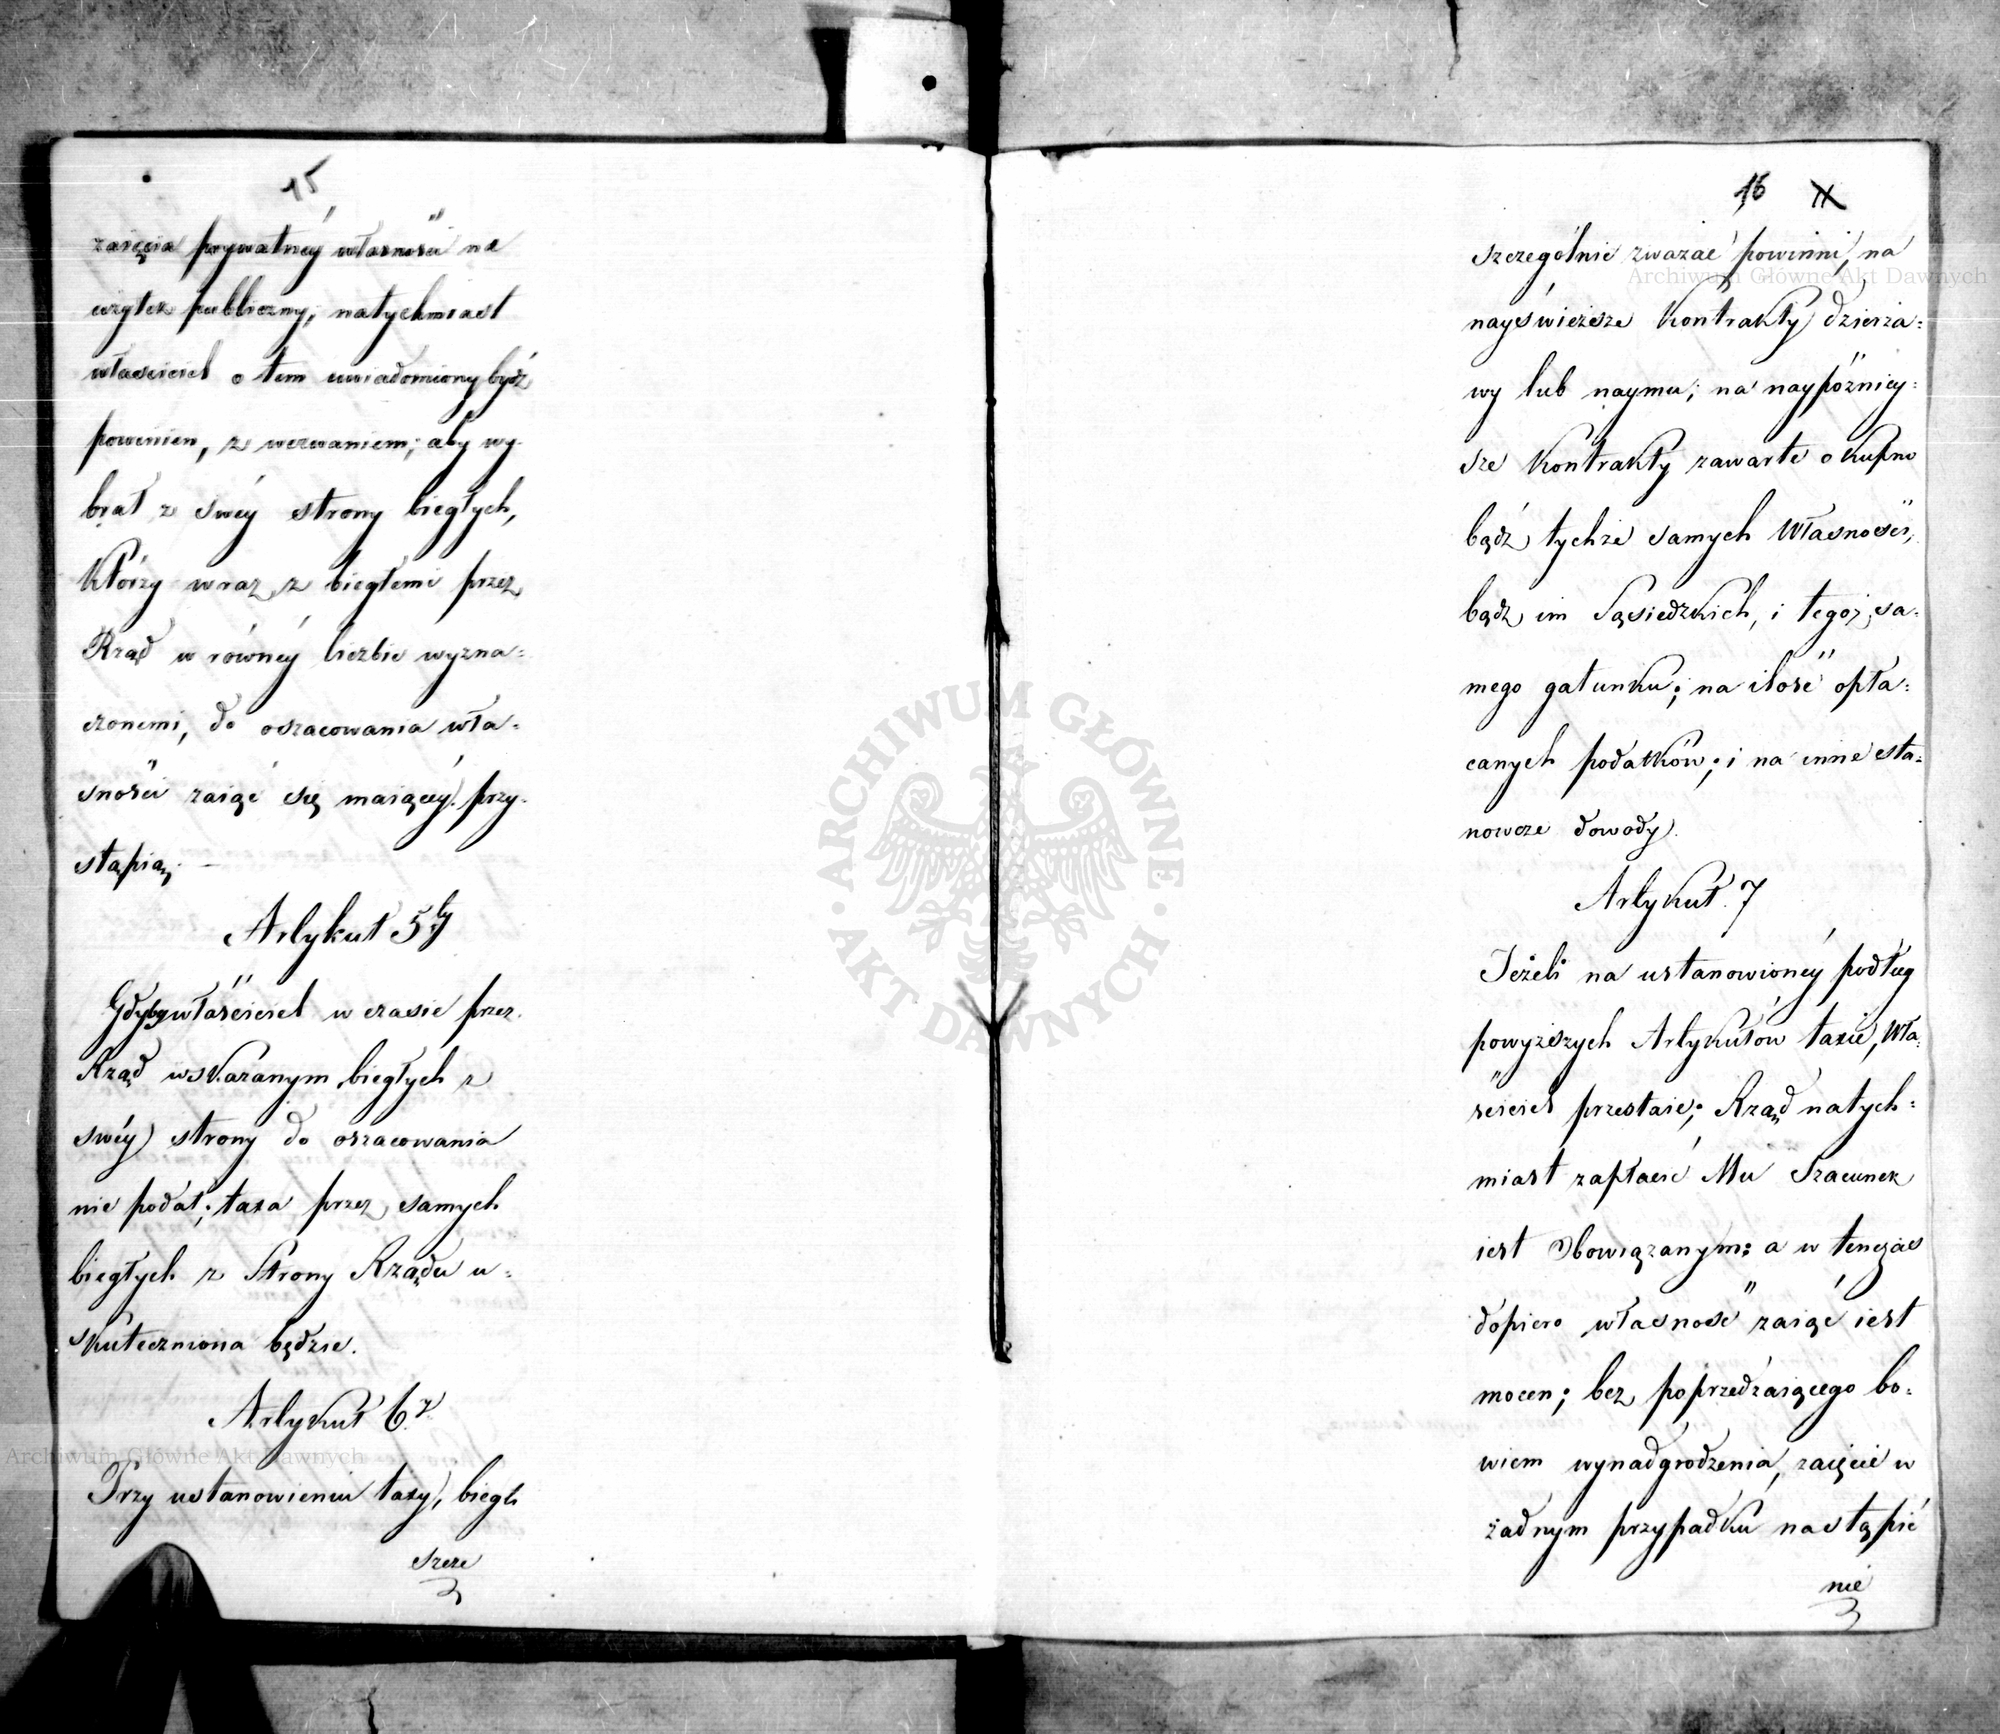 15
zaięcia prywatnéy własności na
użytek publiczny; natychmiast
właściciel o tem uwiadomiony bydź
powinien, z wezwaniem; aby wy-
brał z swéy strony biegłych,
którzy wraz z biegłemi przez
Rząd w równéy liczbie wyzna=
czonemi, do oszacowania wła=
sności zaiąć się maiącéy przy-
stąpią. —
Artykuł 5ty
Gdyby właściciel w czasie przez
Rząd wskazanym biegłych z
swéy strony do oszacowania
nie podał; taxa przez samych
biegłych z Strony Rządu u=
skuteczniona będzie.
Artykuł 6.
Przy ustanowieniu taxy, biegli
szcze
16
szczególnie zważać powinni, na
nayświeższe Kontrakty dzierża=
wy lub naymu; na naypóźniey=
sze Kontrakty zawarte o kupno
bądź tychże samych Własności,
bądź im Sąsiedzkich, i tegoż sa=
mego gatunku; na ilość opła=
canych podatków; i na inne sta=
nowcze dowody.
Artykuł. 7
Jeżeli na ustanowionéy podług
powyższych Artykułów taxie, Wła=
ściciel przestaie; Rząd natych=
miast zapłacić Mu Szacunek
iest Obowiązanym: a w tenczas
dopiero własność zaiąć iest
mocen; bez poprzedzaiącego bo=
wiem wynadgrodzenia, zaięcie w
żadnym przypadku nastąpić
nie
Archiwum Główne Akt Dawnych
Archiwum Główne Akt Dawnych
ARCHIWUM GŁÓWNE
AKT DAWNYCH